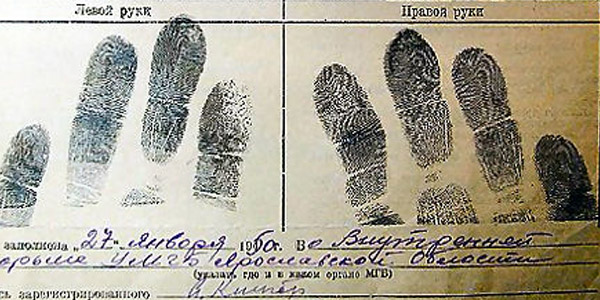 Левой руки
Правой руки
заполнена „27“ Января 1950г. Во Внутренней
юрьме УМГБ Ярославской Области
(указать где и в каком органе МГБ)
ь зарегистрированного